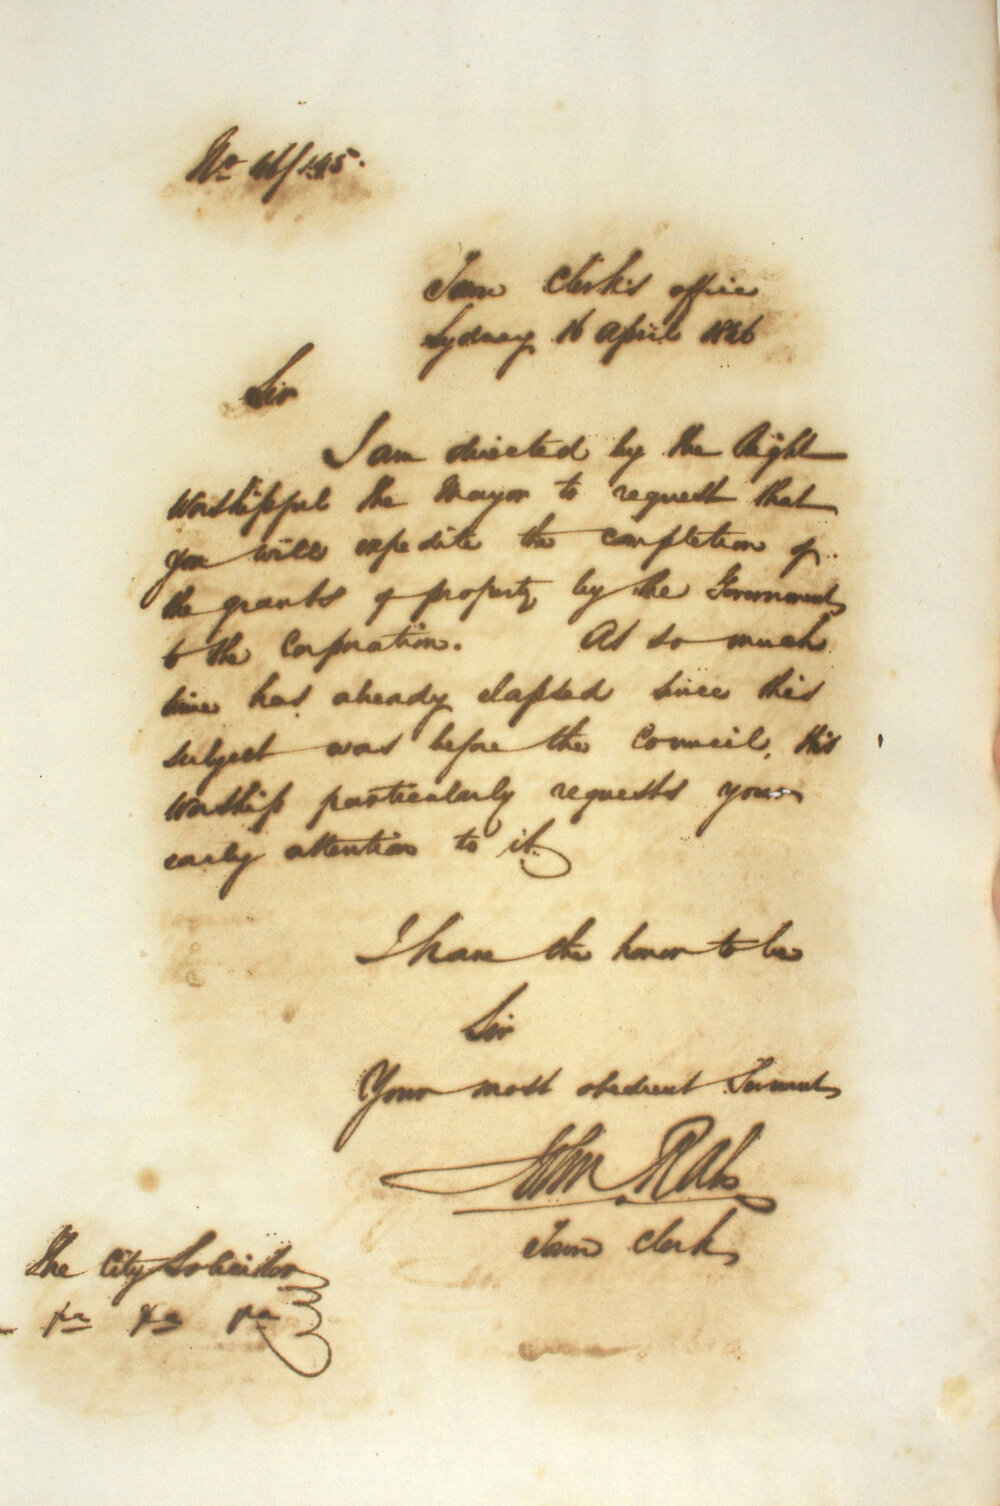 No 46/145.
Town Clerk's office
Sydney 16 April 1846
Sir
I am directed by the Right
Worshipful the Mayor to request that
you will expedite the completion of
the grants of property by the Government
to the Corporation. As so much
time has already elapsed since this
subject was before the Council, His
Worship particularly requests your
early attention to it.
I have the honor to be
Sir
Your most obedient Servant
John Rae
Town Clerk
The City Solicitor
&a &a &a